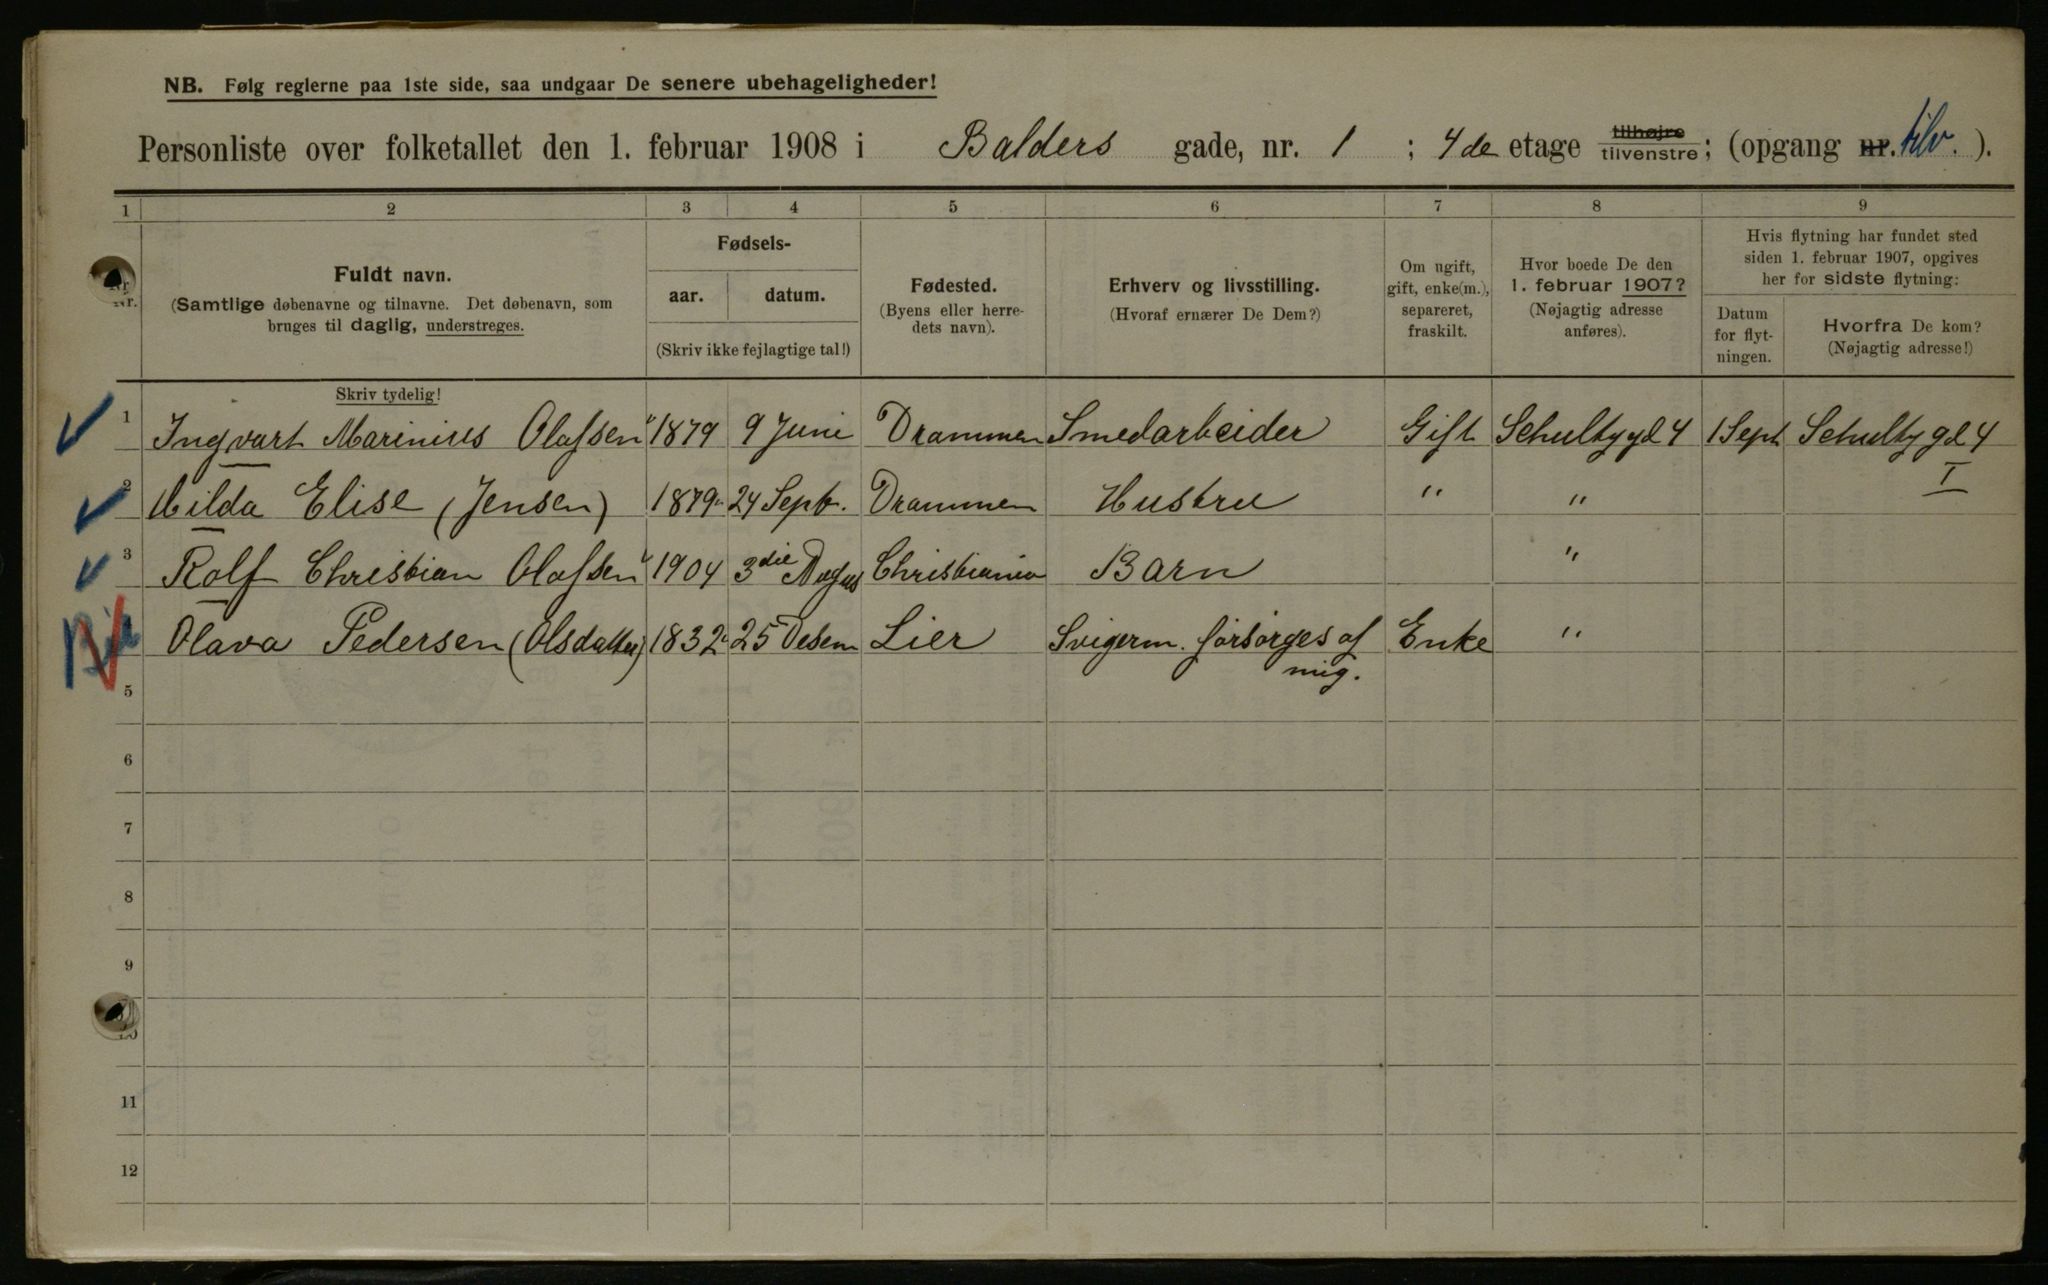 NB. Følg reglerne paa 1ste side, saa undgaar De senere ubehageligheder!
Personliste over folketallet den 1. februar 1908 i Balders gade, nr. 1 ; 4de etage tilhøjre tilvenstre; (opgang nr. tilv. ).
1 2 3 4 5 6 7 8 9
Nr.
Fuldt navn.
(Samtlige døbenavne og tilnavne. Det døbenavn, som
bruges til daglig, understreges.
Fødsels-
aar. datum.
(Skriv ikke fejlagtige tal!)
Fødested.
(Byens eller herre-
dets navn).
Erhverv og livsstilling.
(Hvoraf ernærer De Dem?)
Om ugift,
gift, enke(m.),
separeret,
fraskilt.
Hvor boede De den
1. februar 1907?
(Nøjagtig adresse
anføres).
Hvis flytning har fundet sted
siden 1. februar 1907, opgives
her for sidste flytning:
Datum
for flyt-
ningen.
Hvorfra De kom?
(Nøjagtig adresse!)
Skriv tydelig!
1 Ingvart Marinius Olafsen 1879 9 Juni Drammen Smedarbeider Gift Schultzgd 4 1 Sept Schultzgd 4
I
2 Hilda Elise (Jensen) 1879 24 Sept. Drammen Hustru " "
3 Rolf Christian Olafsen 1904 3die Augus Christiania Barn "
Olava Pedersen (Olsdatter) 1832 25 Desem Lier Svigerm. forsørges af Enke "
mig.
5
6
7
8
9
10
11
12